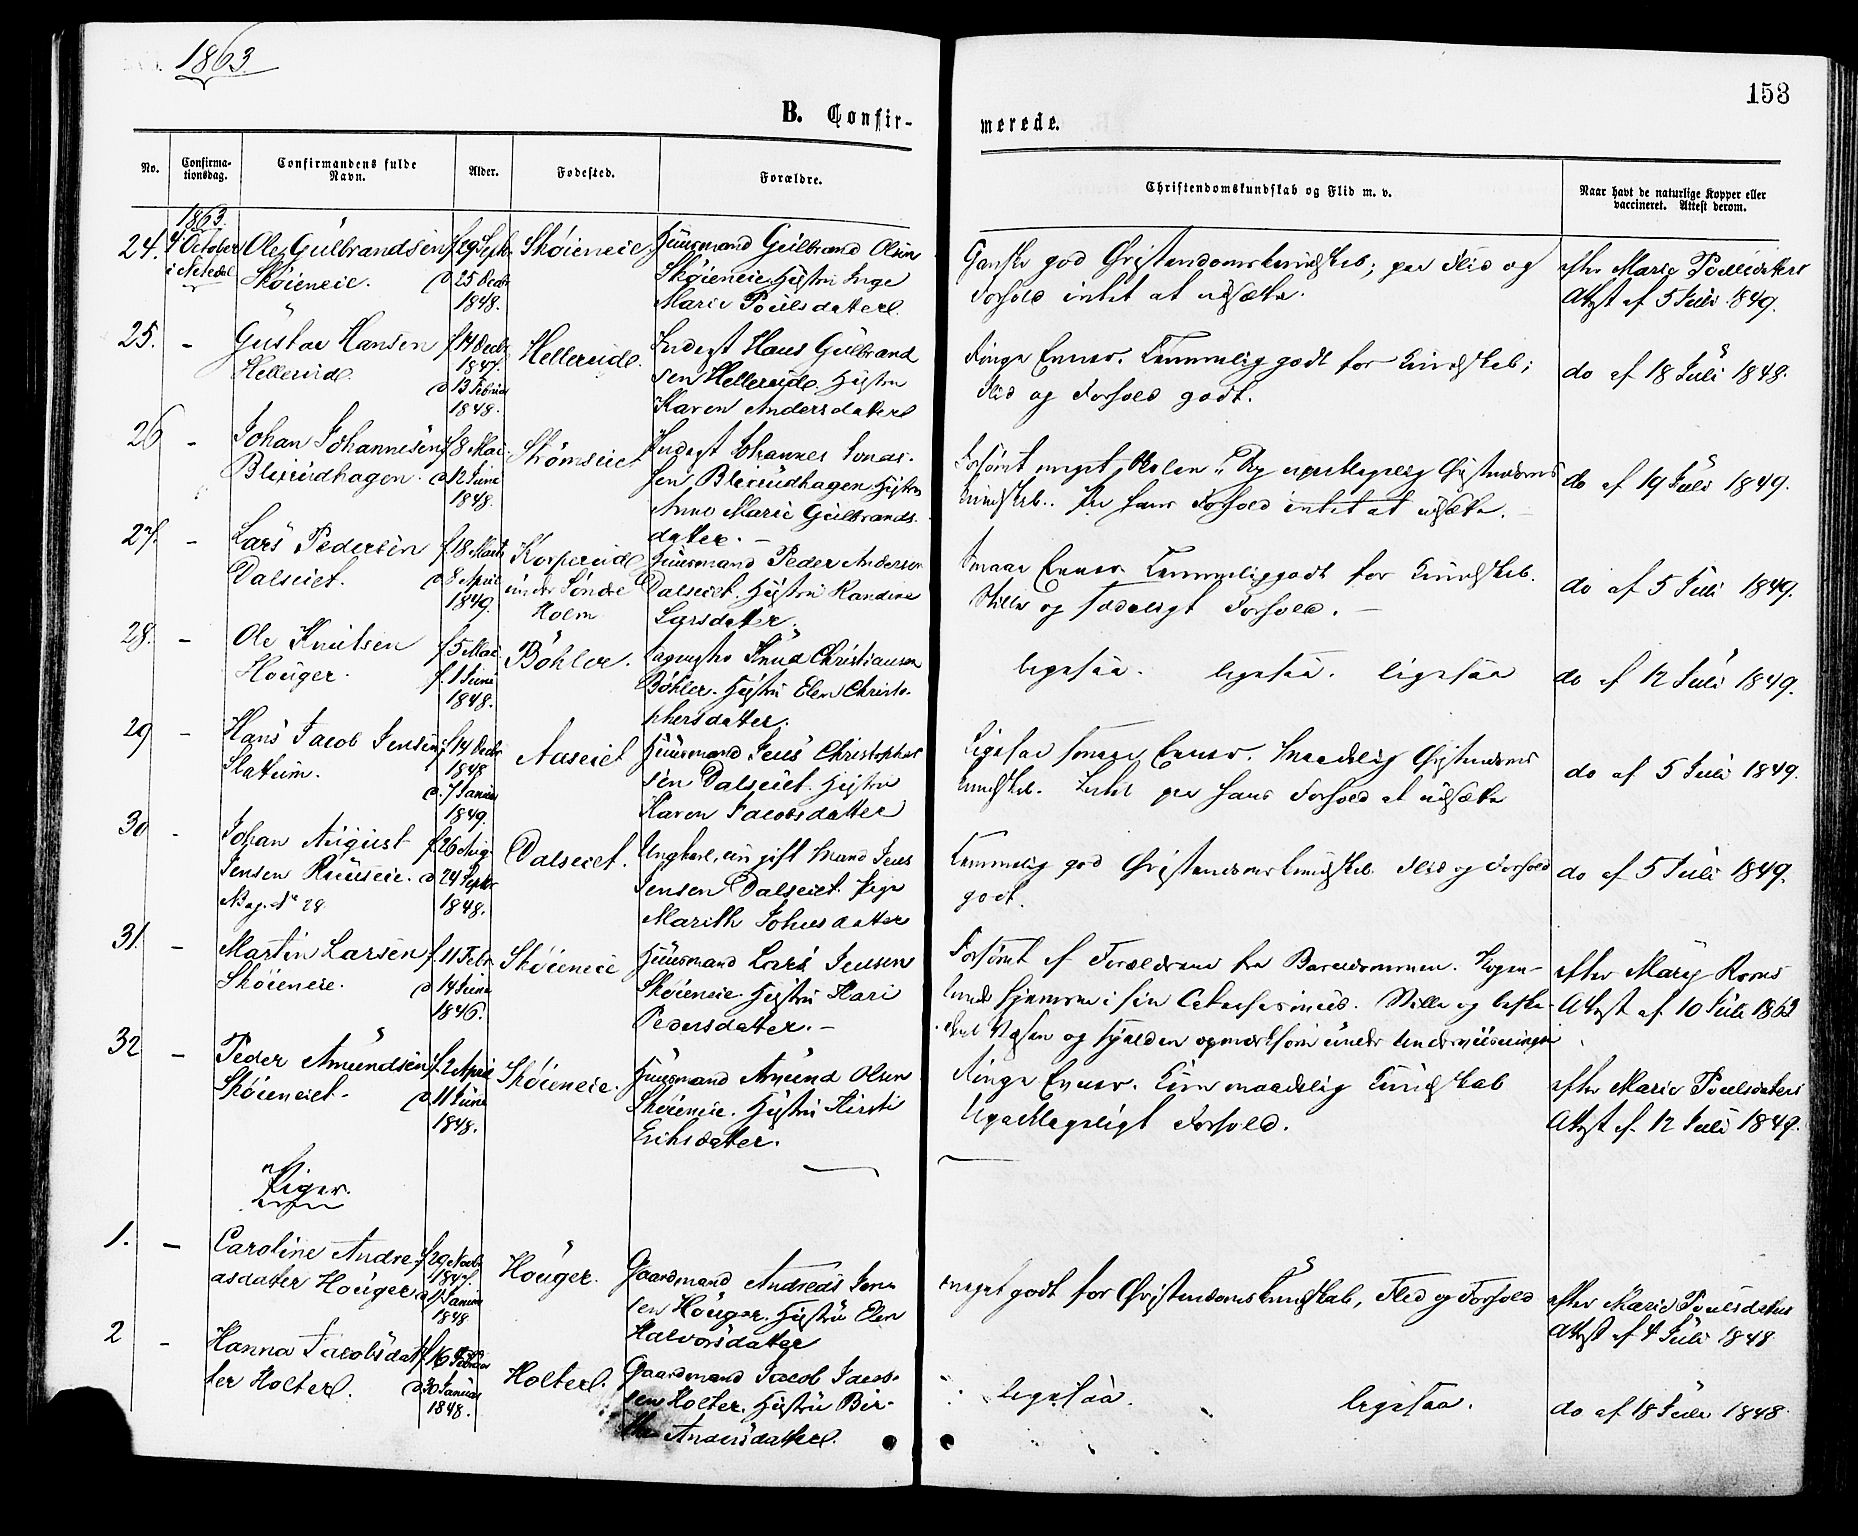 1863
153
B. Confir-
merede.
No.
Confirma-
tionsdag.
Confirmandens fulde
Navn.
Alder.
Fødested.
Forældre.
Christendomskundskab og Flid m. v.
Naar havt de naturlige Kopper eller
vaccineret. Attest derom.
1863.
24. 4 October Ole Gulbrandsen f 29 Septr Skøieneie Huusmand Gulbrand Olsen
Skøieneie. d 25 Decbr Skøieneie Hustru Inge
1848. Marie Poulsdatter
Ganske god Christendomskundskab; paa Flid og
Forhold intet at udsætte.
efter Marie Poulsdatters
Attest af 5 Juli 1849.
25. - Gustav Hansen f 14 Decbr Hellerud. Inderst Hans Gulbrand
Hellerud. 1847. sen Hellerud. Hustru
d 13 Februar Karen Andersdatter
1848.
Ringe Evner. Temmelig godt for Kundskab;
Flid og Forhold godt.
do af 18 Juli 1848.
26 - Johan Johannesen f 8 Mai Strømseiet Inderst Johannes
Blixrudhagen. d 12 Juni sen Blixrudhagen Hustru
1848. Anne Marie Gulbrands-
datter. -
Forsømt meget Skolen. Christendoms
kundskab. Paa hans Forhold intet at udsætte. -
do af 19 Juli 1849.
27. - Lars Pedersen f 18 Marts Korperud Huusmand Peder Andersen
Dalseiet. d 8 April under Søndre Dalseiet. Hustru Randine
1849. Holm Larsdatter.
Svage Evner. Temmelig godt for Kundskab.
Stille og sædeligt Forhold. -
do af 5 Juli 1849.
28. - Ole Knutsen f 5 Mai Bøhler. Knud Christiansen
Houger. f. 1 Juni Bøhler. Hustru Elen Christo-
1848. phersdatter.
ligesaa. ligesaa. ligesaa
do af 12 Juli 1849.
29 - Hans Jacob Jensen f 14 Decbr Aaseiet Huusmand Jens Christopher
Slatum. 1848 sen Dalseiet. Hustru
d. 7 Januar Karen Jacobsdatter
1849.
Ligesaa svage Evner. Maadelig Christendoms
kundskab. Intet paa hans Forhold at udsætte
do af 5 Juli 1849.
30 - Johan August f 26 Aug Dalseiet. Ungkarl, ugift Mand Jens
Jensen Ruuseie. d 24 Septbr Jensen Dalseiet. Pige
1848. Marith Johnsdatter
Temmelig god Christendomskundskab. Flid og Forhold
godt.
do af 5 Juli 1849.
31. - Martin Larsen f. 11 Febr Skøieneie Huusmand Lars Jensen
Skøieneie. d 14 Juni Skøieneie. Hustru Kari
1846. Pedersdatter. -
Forsømt af Forældrene fra Barndommen.
Stille og beske-
dent Væsen og sjelden opmærksom under Underviisningen
efter Mary Roms
Attest af 10 Juli 1863
32 - Peder Amundsen f. 2 April Skøieneie. Huusmand Amund Olsen
Skøieneiet. d 11 Juni Skøieneie. Hustru Kirsti
1848. Eriksdatter.
Ringe Evner. Kun maadelig Kundskab
Upaaklageligt Forhold.
efter Marie Poulsdatters
Attest af 12 Juli 1849.
Piger.
1. - Caroline Andre- f 29 Novbr Houger. Gaardmand Andreas Jen
asdatter Houger 1847. sen Houger. Hustru Elen
d 1 Januar Halvorsdatter
1848
meget godt for Christendomskundskab, Flid og Forhold
efter Marie Poulsdatters
Attest af 4 Juli 1848
2 - Hanna Jacobsdat Holter. Gaardmand Jacob Jacob-
ter Holter. d 30 Januar sen Holter. Hustru Ber-
1848. the Andersdatter.
ligesaa. ligesaa.
do af 18 Juli 1848